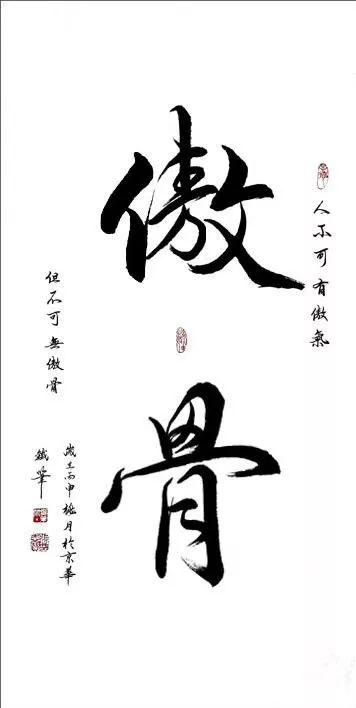 人不可有傲氣
傲骨
但不可無傲骨
歲在丙申月於京華